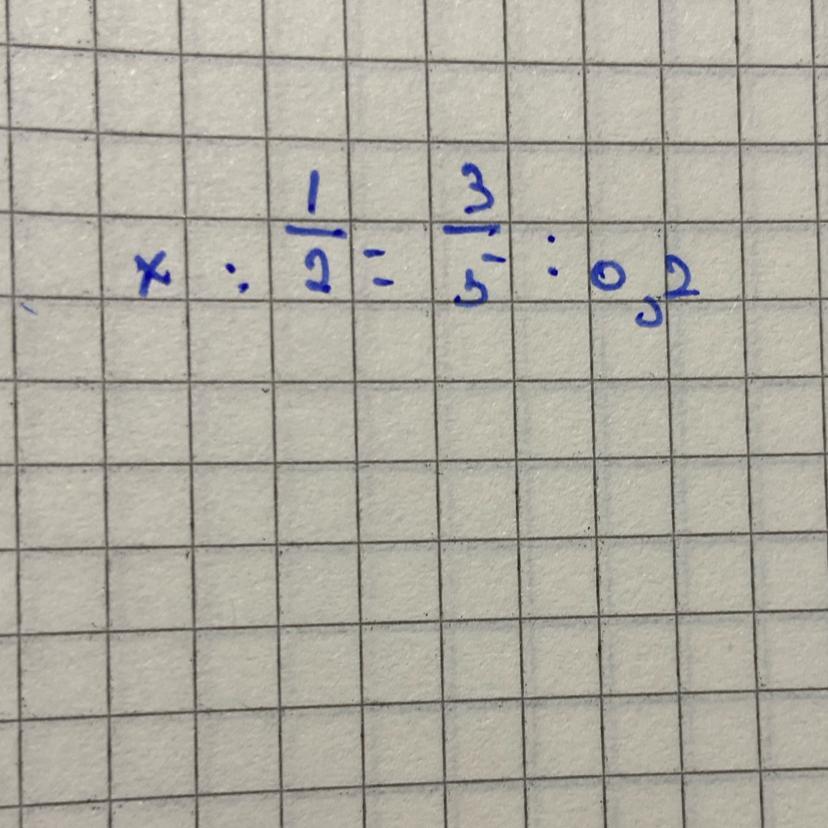 x : 1/2 = 3/5 : 0,2